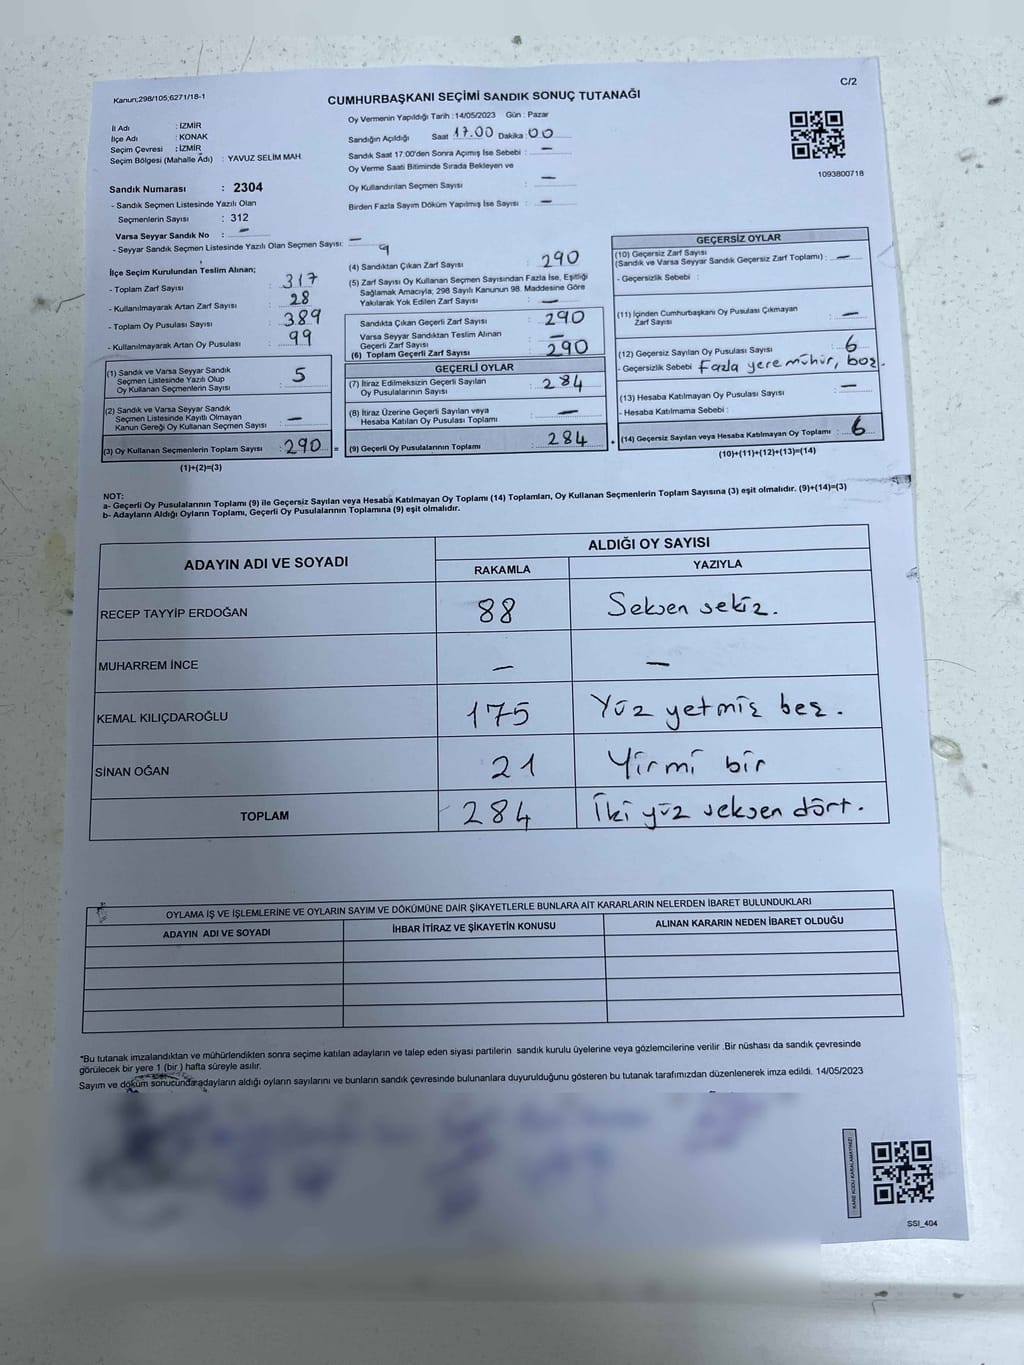 C/2
Kanun;298/105;6271/18-1
CUMHURBAŞKANI SEÇİMİ SANDIK SONUÇ TUTANAĞI
İl Adı : İZMİR
İlçe Adı : KONAK
Seçim Çevresi : İZMİR
Seçim Bölgesi (Mahalle Adı) : YAVUZ SELİM MAH.
Sandık Numarası : 2304
- Sandık Seçmen Listesinde Yazılı Olan
Seçmenlerin Sayısı : 312
Varsa Seyyar Sandık No : –
- Seyyar Sandık Seçmen Listesinde Yazılı Olan Seçmen Sayısı: –
Oy Vermenin Yapıldığı Tarih :14/05/2023 Gün : Pazar
Sandığın Açıldığı Saat 17.00 Dakika : 00
Sandık Saat 17:00'den Sonra Açımış İse Sebebi : –
Oy Verme Saati Bitiminde Sırada Bekleyen ve
Oy Kullandırılan Seçmen Sayısı : –
Birden Fazla Sayım Döküm Yapılmış İse Sayısı : –
1093800718
İlçe Seçim Kurulundan Teslim Alınan;
- Toplam Zarf Sayısı : 317
- Kullanılmayarak Artan Zarf Sayısı : 28
- Toplam Oy Pusulası Sayısı : 389
- Kullanılmayarak Artan Oy Pusulası : 99
(1) Sandık ve Varsa Seyyar Sandık
Seçmen Listesinde Yazılı Olup
Oy Kullanan Seçmenlerin Sayısı : 5
(2) Sandık ve Varsa Seyyar Sandık
Seçmen Listesinde Kayıtlı Olmayan
Kanun Gereği Oy Kullanan Seçmen Sayısı : –
(3) Oy Kullanan Seçmenlerin Toplam Sayısı : 290 =
(1)+(2)=(3)
(4) Sandıktan Çıkan Zarf Sayısı : 290
(5) Zarf Sayısı Oy Kullanan Seçmen Sayısından Fazla İse, Eşitliği
Sağlamak Amacıyla; 298 Sayılı Kanunun 98. Maddesine Göre
Yakılarak Yok Edilen Zarf Sayısı : –
Sandıkta Çıkan Geçerli Zarf Sayısı : 290
Varsa Seyyar Sandıktan Teslim Alınan
Geçerli Zarf Sayısı : –
(6) Toplam Geçerli Zarf Sayısı : 290
GEÇERLİ OYLAR
(7) İtiraz Edilmeksizin Geçerli Sayılan
Oy Pusulasının Sayısı : 284
(8) İtiraz Üzerine Geçerli Sayılan veya
Hesaba Katılan Oy Pusulası Toplamı : –
(9) Geçerli Oy Pusulalarının Toplamı : 284
GEÇERSİZ OYLAR
(10) Geçersiz Zarf Sayısı
(Sandık ve Varsa Seyyar Sandık Geçersiz Zarf Toplamı) : –
- Geçersizlik Sebebi :
(11) İçinden Cumhurbaşkanı Oy Pusulası Çıkmayan
Zarf Sayısı : –
(12) Geçersiz Sayılan Oy Pusulası Sayısı : 6
- Geçersizlik Sebebi Fazla yere mühür, boş.
(13) Hesaba Katılmayan Oy Pusulası Sayısı : –
- Hesaba Katılmama Sebebi :
(14) Geçersiz Sayılan veya Hesaba Katılmayan Oy Toplamı : 6
(10)+(11)+(12)+(13)=(14)
NOT:
a- Geçerli Oy Pusulalarının Toplamı (9) ile Geçersiz Sayılan veya Hesaba Katılmayan Oy Toplamı (14) Toplamları, Oy Kullanan Seçmenlerin Toplam Sayısına (3) eşit olmalıdır. (9)+(14)=(3)
b- Adayların Aldığı Oyların Toplamı, Geçerli Oy Pusulalarının Toplamına (9) eşit olmalıdır.
ADAYIN ADI VE SOYADI
ALDIĞI OY SAYISI
RAKAMLA YAZIYLA
RECEP TAYYİP ERDOĞAN 88 Seksen sekiz.
MUHARREM İNCE – –
KEMAL KILIÇDAROĞLU 175 Yüz yetmiş beş.
SİNAN OĞAN 21 Yirmi bir
TOPLAM 284 İki yüz seksen dört.
OYLAMA İŞ VE İŞLEMLERİNE VE OYLARIN SAYIM VE DÖKÜMÜNE DAİR ŞİKAYETLERLE BUNLARA AİT KARARLARIN NELERDEN İBARET BULUNDUKLARI
ADAYIN ADI VE SOYADI İHBAR İTİRAZ VE ŞİKAYETİN KONUSU ALINAN KARARIN NEDEN İBARET OLDUĞU
*Bu tutanak imzalandıktan ve mühürlendikten sonra seçime katılan adayların ve talep eden siyasi partilerin sandık kurulu üyelerine veya gözlemcilerine verilir .Bir nüshası da sandık çevresinde
görülecek bir yere 1 (bir ) hafta süreyle asılır.
Sayım ve döküm sonucunda adayların aldığı oyların sayılarını ve bunların sandık çevresinde bulunanlara duyurulduğunu gösteren bu tutanak tarafımızdan düzenlenerek imza edildi. 14/05/2023
KARE KODU KARALAMAYINIZ!
SSI_404